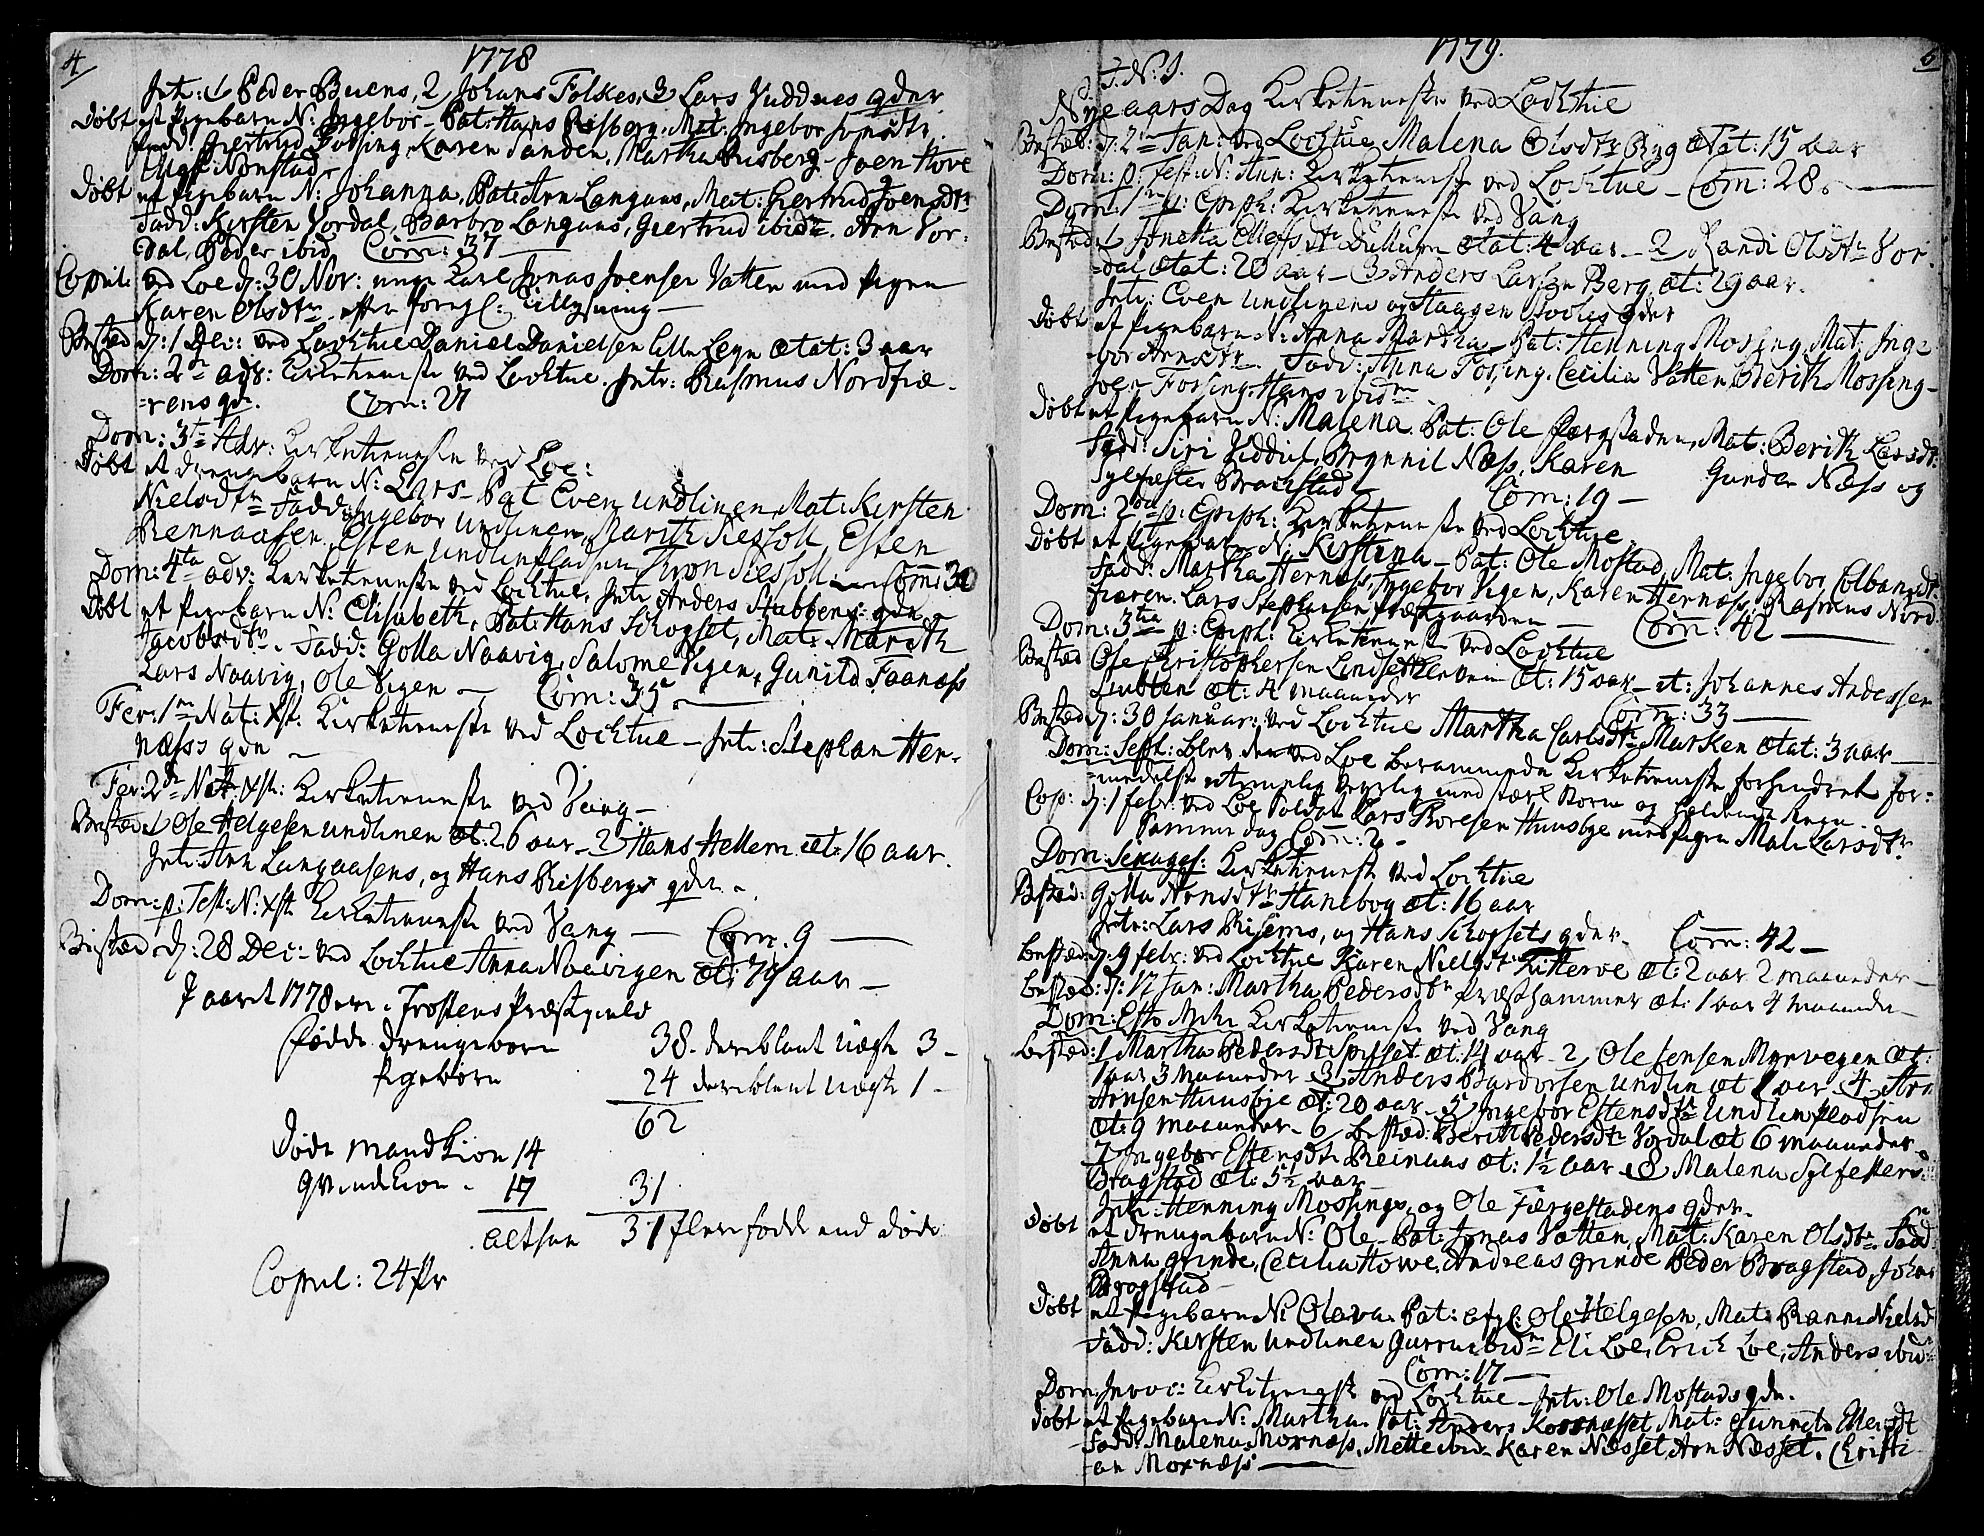 4
1778
Intr: 1 Peder Buens, 2 Johans Folkes, 3 Lars Juddnes qder
Døbt et Pigebarn N: Ingebor. Pat: Hans Risberg. Mat: Ingebor
Fadd: Giertrud Fossing, Karen Sanden, Martha Risberg. Joen Hove
Nonstad
Døbt et Pigebarn N: Johanna, Pat: Arn Langaas, Mat: Giertrud Joensdtr
Fadd: Kirsten Vordal, Barbro Langaas, Giertrud ibid: Arn Vor-
dal, Peder ibid. Com: 37
Copul: ved Loe d: 30 Nov: unge Karl Jonas Joensen Vatten med Pigen
Karen Olsdtr efter foregl: Tillysning
Bested d: 1 Dec: ved Lochtue Daniel Danielsen lille Legn ætat: 3 aar
Dom: 2 adv: Kirketieneste ved Lochtue. Intr: Rasmus Nordfiæ-
rens qde. Com: 21
Dom: 3 Adv: Kirketieneste ved Loe:
Døbt et drengebarn N: Lars. Pat Even Undlinen, Mat: Kirsten
Nielsdtr Fadd: Ingebor Undlinen, Marith Siessoll, Esten
Rennaasen, Esten Undlinpladsen Siessoll Com: 30
Dom: 4ta adv: Kirketieneste ved Lochtue, Intr Anders Stubbens qde
Døbt et Pigebarn N: Elisabeth, Pat: Hans Schogset, Mat: Marith
Jacobsdtr. Fadd: Golla Naavig, Salome Vigen, Gunild Faanæss
Lars Naavig, Ole Vigen — Com: 35
Fer: 1 Nat: Xsti: Kirketieneste ved Lochtue — Intr: Stephan Her-
næss qde
Fer: 2 Nat: Xsti: Kirketieneste ved Vang
Bested 1 Ole Helgesen Undlinen æt: 26 aar 2 Hans Hellem æt: 16 aar
Intr: Arn Langaasens, og Hans Risbergs qder
Dom: p: Fest: N: Xsti Kirketieneste ved Vang — Com. 9
Bested d: 28 Dec: ved Lochtue Anna Naavigen æt: 79 aar
I aaret 1778 ere i Frostens Præstegield
fødde drengebørn 38. deriblant uægte 3
Pigebørn 24 deriblant uægte 1
62
døde Mandkiøn 14
qvindekiøn 17 31
altsaa 31 flere fødde end døde
Copul: 24 Pr

1779.
6
J. N: J.
Nye aars Dag Kirketieneste ved Lochtue
Bested: d: 2 Jan: ved Lochtue Malena Olsdtr Byg ætat: 15 aar
Dom: p: Fest: N: Ann: Kirketieneste ved Lochtue — Com: 28
Dom: 1 p: Epiph: Kirketieneste ved Vang
Bested 1 Joneta Ellefsdtr ætat: 4 aar — 2 Randi Olsdtr Vor-
dal ætat: 20 aar — 3 Anders Larsen Berg æt: 29 aar.
Intr: Even Undlinens og qder
Døbt et Pigebarn N: Anna Martha. Pat: Henning Mossing, Mat: Inge-
bor Arnsdtr Fadd: Anna Fossing, Cecilia Vatten, Berith Mossing
Joen Fossing, Hans ibid
Døbt et Pigebarn N: Malena. Pat: Ole Færgstaden, Mat: Berith Larsdtr
Fadd: Siri Viddul, Brynnil Næss, Karen Gunder Næss og
Sylfester Brachstad — Com: 19
Dom: 2 p: Epiph: Kirketieneste ved Lochtue
Døbt et Pigebarn N: Kirstina — Pat: Ole Mostad, Mat: Ingebor Colbansdtr
Fadd: Martha Hernæss, Ingebor Vigen, Karen Hernæss, Rasmus Nord
fiæren. Lars Stephansen Præstgaarden — Com: 42
Dom: 3tia p: Epiph: Kirketieneste ved Lochtue
Bested Ole Christophersen æt: 15 aar — et: Johannes Andersen
Stubban æt: 4 maaneder Com: 33
Bested d: 30 Januar: ved Lochtue Martha Carlsdtr Marken ætat: 3 aar
Dom: Sept: blev den ved Loe berammede Kirketieneste forhindret for-
medelst utrolig veyrlig med stærk Storm og heldende Regn
Cop: d: 1 febr: ved Loe Soldat Lars Toresen Huusbye med Pigen Mali Larsdtr
Samme dag Com: 2
Dom: Sexages: Kirketieneste ved Lochtue
Bested: Golla Arnsdtr Hanebog æt: 16 aar
Intr: Lars Risems, og Hans Schogsets qder. Com: 42
bested d: 9 febr: ved Lochtue Karen Nielsdtr Kitterøe æt: 2 aar 2 maaneder
bested: d: 17 Jan: Martha Pedersdtr Præsthammer æt: 1 aar 4 maaneder
Dom: Esto Mihi Kirketieneste ved Vang
bested: 1 Martha Pedersdtr Spilset æt: 14 aar 2 Ole Jensen Myrvegen æt:
1 aar 3 maaneder 3 Anders Bardorsen Undlin æt 1 aar 4 Arn
Arnsen Huusbye æt: 20 aar 5 Ingebor Estensdtr Undlinpladsen
æt: 9 maaneder 6 bested: Berith Pedersdtr Vordal æt 6 maaneder
7 Ingebor Estensdtr Reinaas æt: 1½ aar 8 Malena Sylfesters
Bragstad æt: 5½ aar
Intr: Henning Mossings, og Ole Færgestadens qder.
Døbt et drengebarn N: Ole. Pat: Jonas Vatten, Mat: Karen Olsdtr Fadd:
Anna Grinde, Cecilia Howe, Andreas Grinde Peder Bragstad, Johan
Bragstad
Døbt et Pigebarn N: Olava. Pat: afgl: Ole Helgesen, Mat: Ranni Nielsd
Fadd: Kirsten Undlinen Gurru ibid Eli Loe, Erich Loe, Anders ibid
Com: 17
Dom: Invoc: Kirketieneste ved Lochtue — Intr: Ole Mostads qde.
Døbt et Pigebarn N: Martha. Pat: Anders Korsnesset Mat: Gunnil Ellefsdt
Fadd: Malena Moxnæss, Mette ibid Karen Næsset, Arn Næsset, Christi-
an Moxnæss